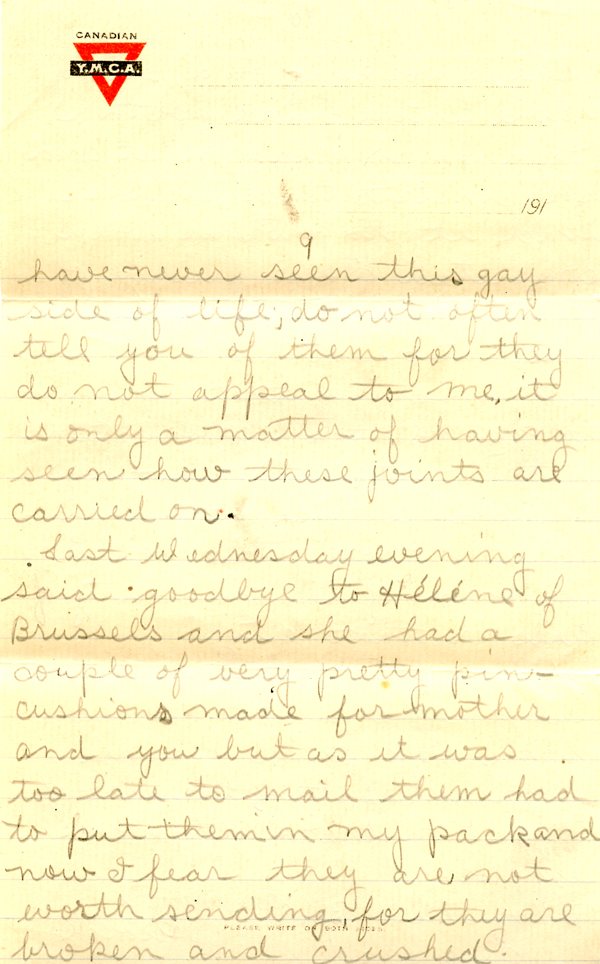 CANADIAN
Y.M.C.A.
191
9
have never seen this gay
side of life, do not often
tell you of them for they
do not appeal to me, it
is only a matter of having
seen how these joints are
carried on.
Last Wednesday evening
said goodbye to Héléne of
Brussels and she had a
couple of very pretty pin-
cushions made for mother
and you but as it was
too late to mail them had
to put them in my pack and
now I fear they are not
worth sending, for they are
PLEASE WRITE ON BOTH SIDES
broken and crushed.